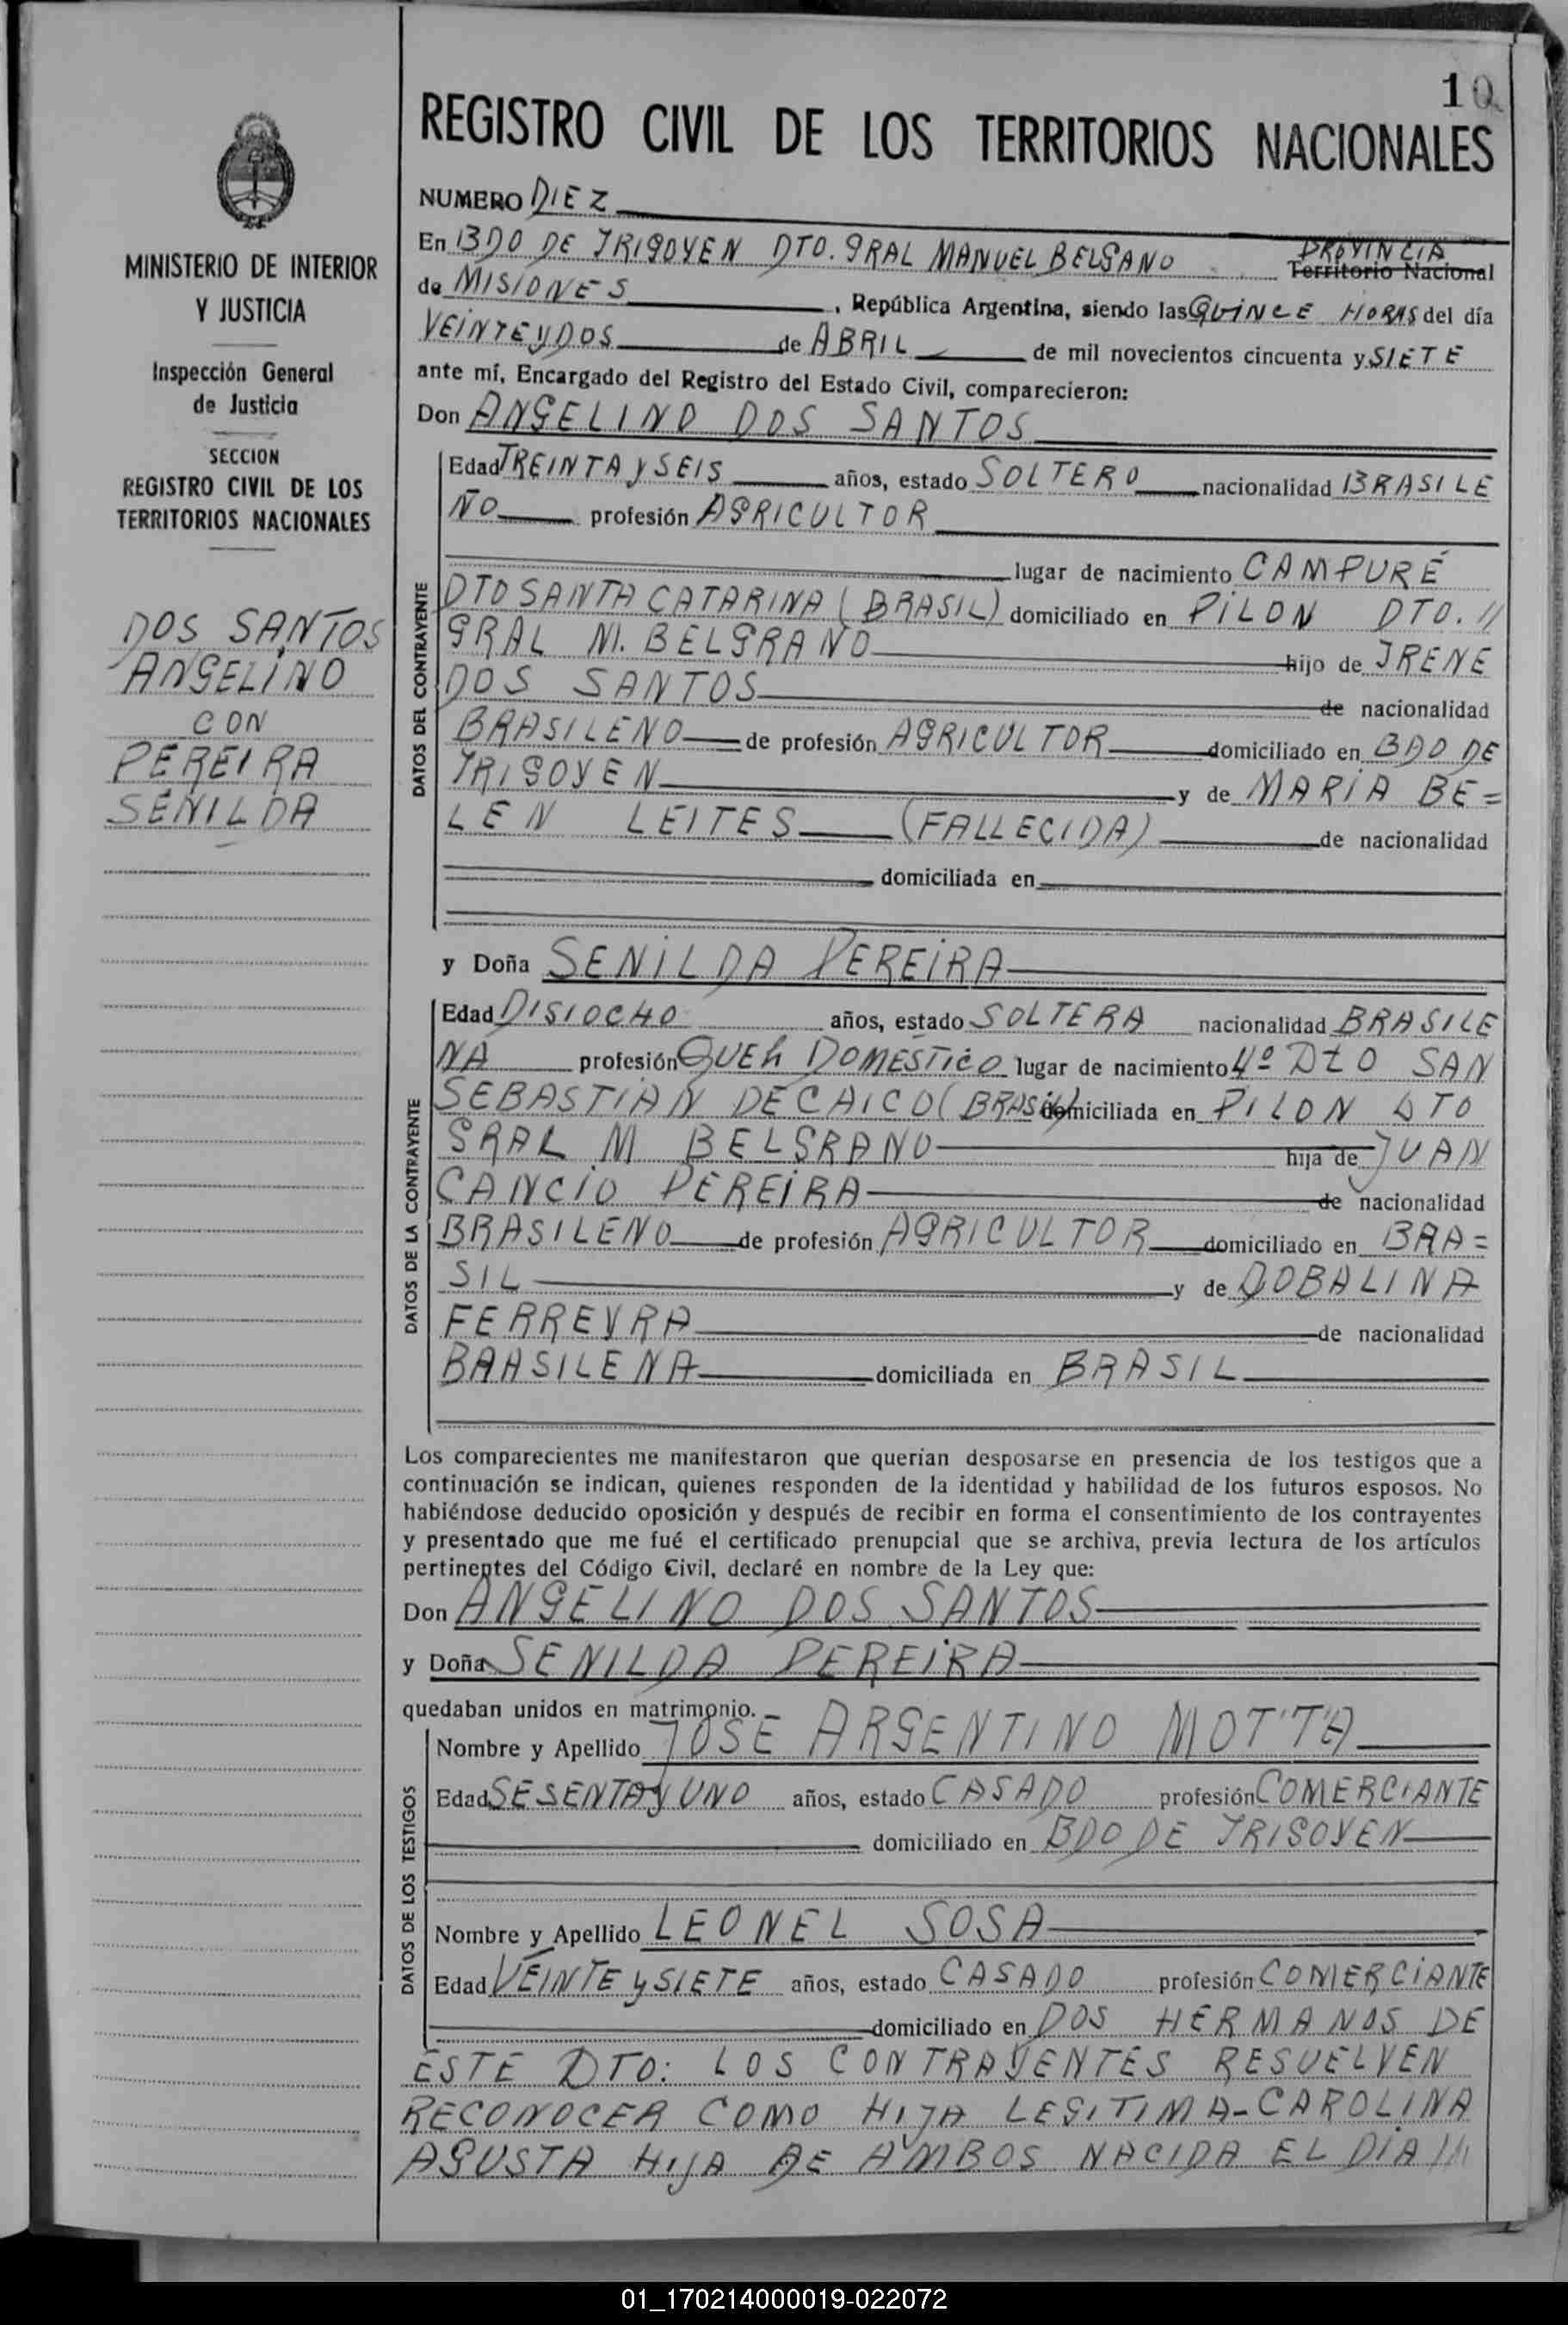 10
REGISTRO CIVIL DE LOS TERRITORIOS NACIONALES
MINISTERIO DE INTERIOR
Y JUSTICIA
Inspección General
de Justicia
SECCION
REGISTRO CIVIL DE LOS
TERRITORIOS NACIONALES
DOS SANTOS
ANGELINO
CON
PEREIRA
SENILDA
NUMERO DIEZ
En BDO DE IRIGOYEN DTO. GRAL MANUEL BELGANO PROVINCIA
Territorio Nacional
de MISIONES, República Argentina, siendo las QUINCE HORAS del día
VEINTE Y DOS de ABRIL de mil novecientos cincuenta y SIETE
ante mí, Encargado del Registro del Estado Civil, comparecieron:
Don ANGELINO DOS SANTOS
DATOS DEL CONTRAYENTE
Edad TREINTA Y SEIS años, estado SOLTERO nacionalidad BRASILE
ÑO profesión AGRICULTOR
lugar de nacimiento CAMPURÉ
DTO SANTA CATARINA (BRASIL) domiciliado en PILON DTO. //
GRAL M. BELGRANO hijo de IRENE
DOS SANTOS de nacionalidad
BRASILENO de profesión AGRICULTOR domiciliado en BDO DE
IRIGOYEN y de MARIA BE=
LEN LEITES (FALLECIDA) de nacionalidad
domiciliada en
y Doña SENILDA PEREIRA
DATOS DE LA CONTRAYENTE
Edad DISIOCHO años, estado SOLTERA nacionalidad BRASILE
NA profesión QUEH DOMESTICO lugar de nacimiento 4º DTO SAN
SEBASTIAN DE CAICO (BRASIL) domiciliada en PILON DTO
GRAL M BELGRANO hija de JUAN
CANCIO PEREIRA de nacionalidad
BRASILENO de profesión AGRICULTOR domiciliado en BRA=
SIL y de DOBALINA
FERREYRA de nacionalidad
BRASILENA domiciliada en BRASIL
Los comparecientes me manifestaron que querían desposarse en presencia de los testigos que a
continuación se indican, quienes responden de la identidad y habilidad de los futuros esposos. No
habiéndose deducido oposición y después de recibir en forma el consentimiento de los contrayentes
y presentado que me fué el certificado prenupcial que se archiva, previa lectura de los artículos
pertinentes del Código Civil, declaré en nombre de la Ley que:
Don ANGELINO DOS SANTOS
y Doña SENILDA PEREIRA
quedaban unidos en matrimonio.
DATOS DE LOS TESTIGOS
Nombre y Apellido JOSE ARGENTINO MOTTA
Edad SESENTA Y UNO años, estado CASADO profesión COMERCIANTE
domiciliado en BDO DE IRIGOYEN
Nombre y Apellido LEONEL SOSA
Edad VEINTE Y SIETE años, estado CASADO profesión COMERCIANTE
domiciliado en DOS HERMANOS DE
ESTE DTO: LOS CONTRAYENTES RESUELVEN
RECONOCER COMO HIJA LEGITIMA-CAROLINA
AGUSTA HIJA DE AMBOS NACIDA EL DIA ///
01_170214000019-022072